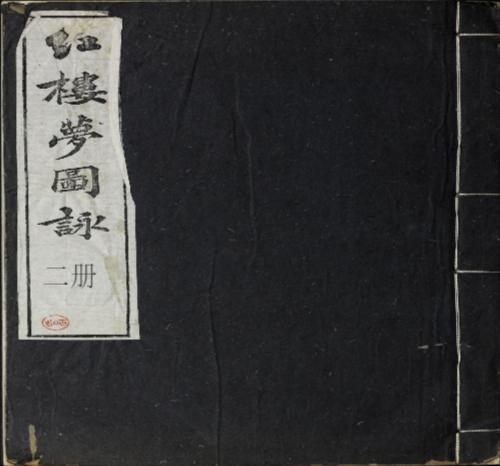 红樓夢圖詠
二册